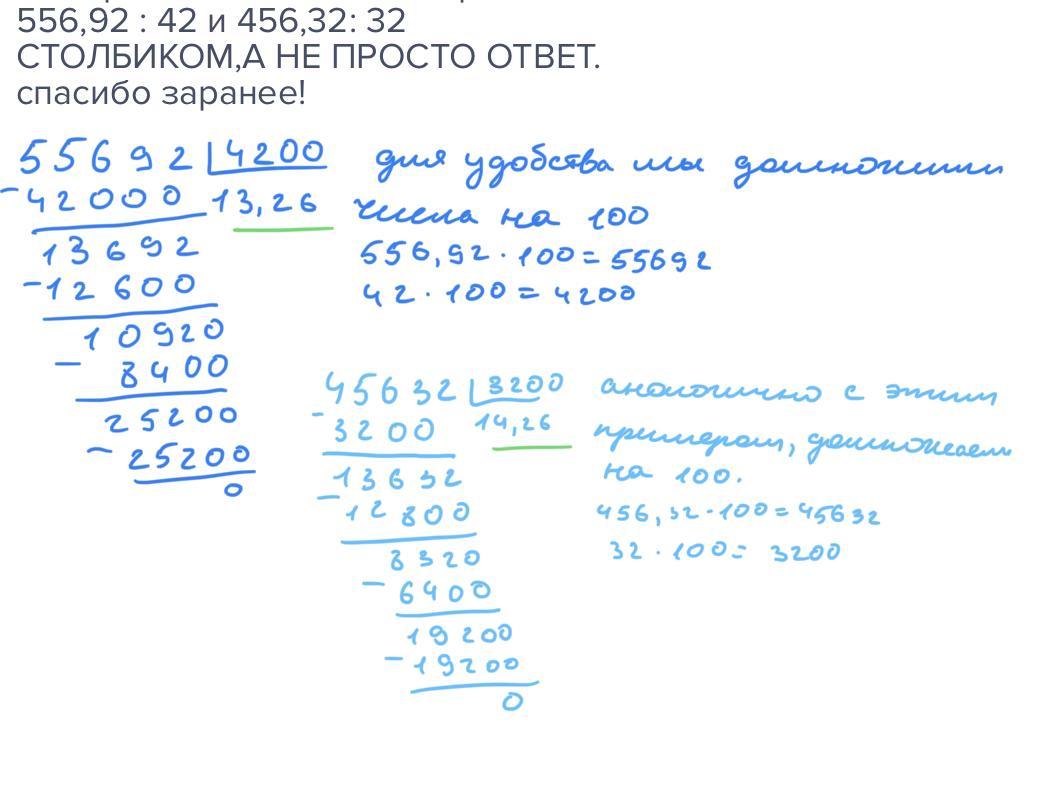 556,92 : 42 и 456,32: 32
СТОЛБИКОМ,А НЕ ПРОСТО ОТВЕТ.
спасибо заранее!
55692 4200
- 42000 13,26
13692
- 12600
10920
- 8400
25200
- 25200
0
для удобства мы домножили
числа на 100
556,92 · 100 = 55692
42 · 100 = 4200
45632 3200
- 3200 14,26
13632
- 12800
8320
- 6400
19200
- 19200
0
аналогично с этим
примером, домножаем
на 100.
456,32 · 100 = 45632
32 · 100 = 3200